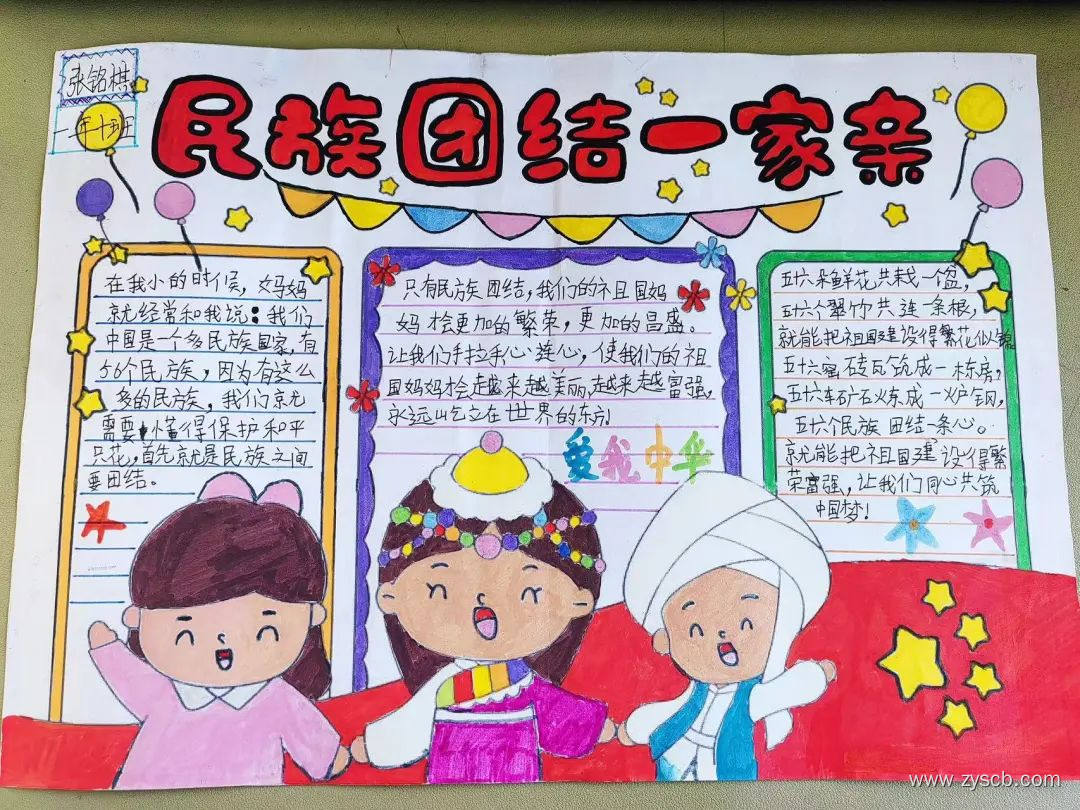 张铭棋
一年十五班
民族团结一家亲
在我小的时候，妈妈
就经常和我说：我们
中国是一个多民族国家，有
56个民族，因为有这么
多的民族，我们就尤
需要懂得保护和平
只花，首先就是民族之间
要团结。
只有民族团结，我们的祖国妈
妈才会更加的繁荣，更加的昌盛。
让我们手拉手心连心，使我们的祖
国妈妈才会越来越美丽，越来越富强，
永远屹立在世界的东方！
爱我中华
五六朵鲜花共栽一个盆，
五六个翠竹共连一条根，
就能把祖国建设得繁花似锦
五六窑砖瓦筑成一栋房，
五六车矿石炼成一炉钢，
五六个民族团结一条心。
就能把祖国建设得繁
荣富强，让我们同心共筑
中国梦！
www.zyscb.com